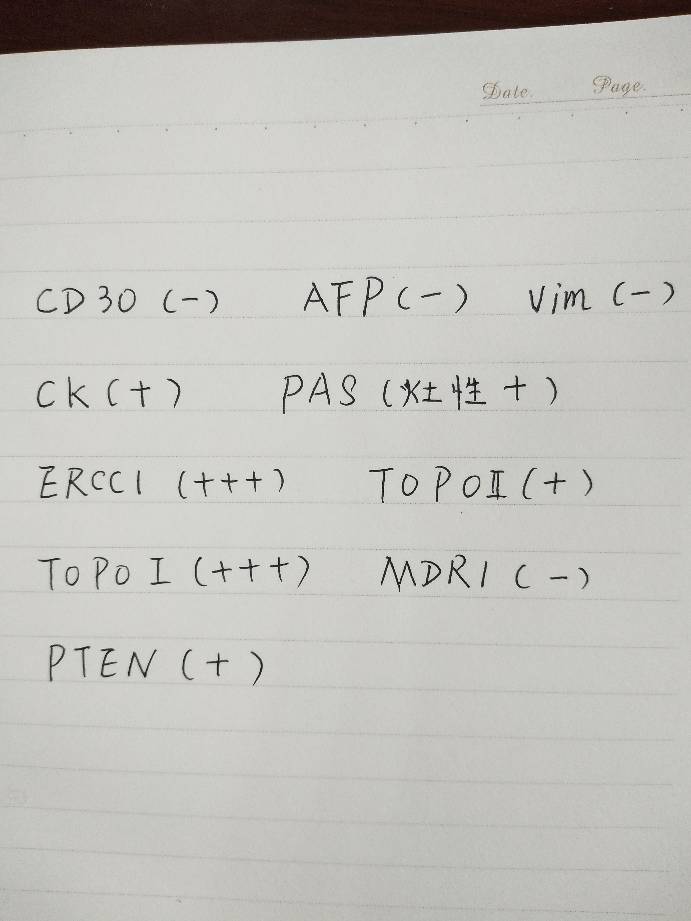 Date. Page.
CD30 (-) AFP (-) Vim (-)
CK (+) PAS (灶性 +)
ERCC1 (+++) TOPOⅡ (+)
TOPO Ⅰ (+++) MDR1 (-)
PTEN (+)